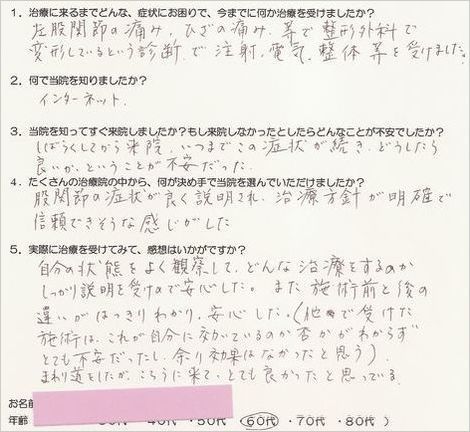 1. 治療に来るまでどんな、症状にお困りで、今までに何か治療を受けましたか?
左股関節の痛み、ひざの痛み、等で整形外科で
変形しているという診断で注射、電気、整体等を受けました。
2. 何で当院を知りましたか?
インターネット.
3. 当院を知ってすぐ来院しましたか?もし来院しなかったとしたらどんなことが不安でしたか?
しばらくしてから来院、いつまでこの症状が続き、どうしたら
良いか、ということが不安だった.
4. たくさんの治療院の中から、何が決め手で当院を選んでいただけましたか?
股関節の症状が良く説明され、治療方針が明確で
信頼できそうな感じがした
5. 実際に治療を受けてみて、感想はいかがですか?
自分の状態をよく観察して、どんな治療をするのか
しっかり説明を受けので安心した。また施術前と後の
違いがはっきりわかり、安心した。(他で受けた
施術は、これが自分に効いているのか否かがわからず
とても不安だったし、余り効果はなかったと思う).
まわり道をしたが、こちらに来て、とても良かったと思っている.
お名前
年齢 ・40代・50代・60代・70代・80代)